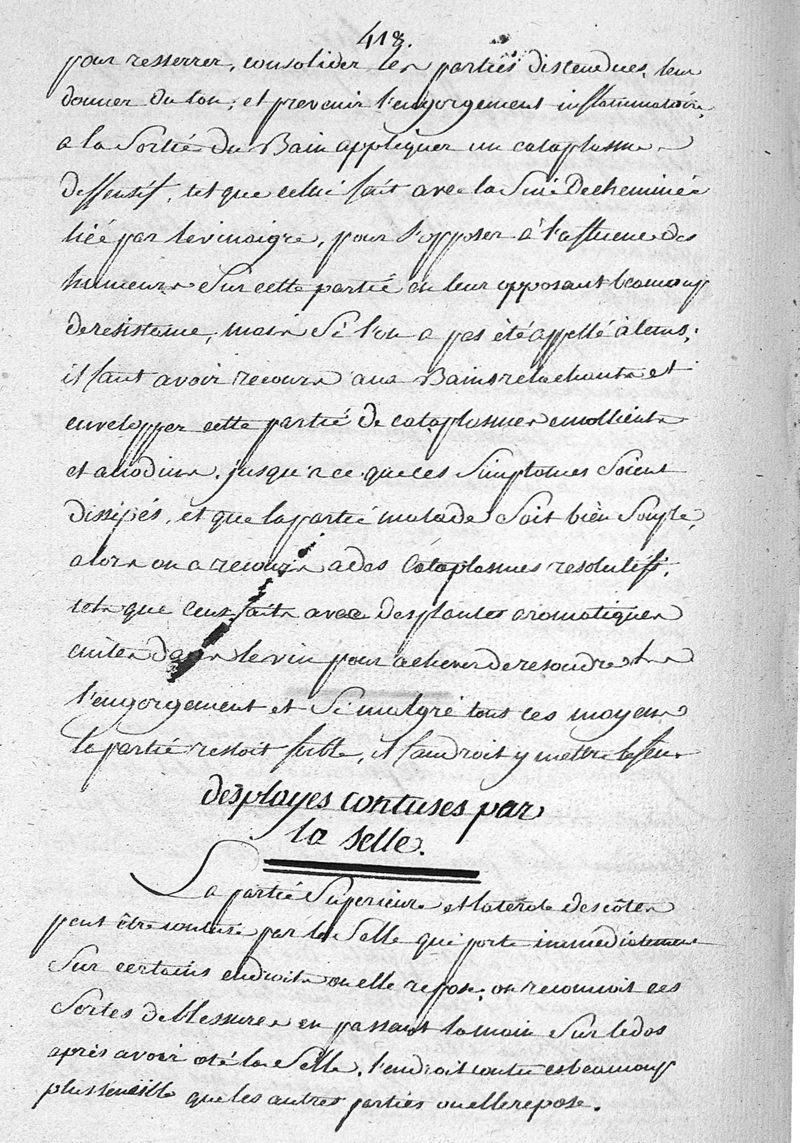 418.
pour resserrer, consolider les parties distendues, leur
donner du ton; et prevenir l'engorgement inflammatoire,
a la Sortie du Bain appliquer un cataplasme
deffensif, tel que celui fait avec la Suie De cheminée
liée par le vinaigre, pour s'opposer à l'affluence des
humeurs Sur cette partie en leur opposant beaucoup
de resistance, mais Si l'on a pas été appellé à tems;
il faut avoir recours aux Bains relachants et
envelopper cette partie de cataplasmes emollients
et anodins, jusqu'a ce que ces Simptomes Soient
dissipés, et que la partie malade Soit bien Souple,
alors on a recours a des Cataplasmes resolutifs,
tels que ceux faits avec des plantes aromatiques
cuites dans le vin pour achever de resoudre
l'engorgement et Si malgré tous ces moyens
la partie restoit foible, il faudroit y mettre le feu
des playes contuses par
la Selle.
La partie Superieure et laterale des côtes
peut être contuse par la Selle que porte immediatement
Sur certains endroits ou elle repose, on reconnoit ces
Sortes de blessures en passant la main Sur le dos
après avoir oté la Selle, l'endroit contus est beaucoup
plus sensible que les autres parties ou elle repose.